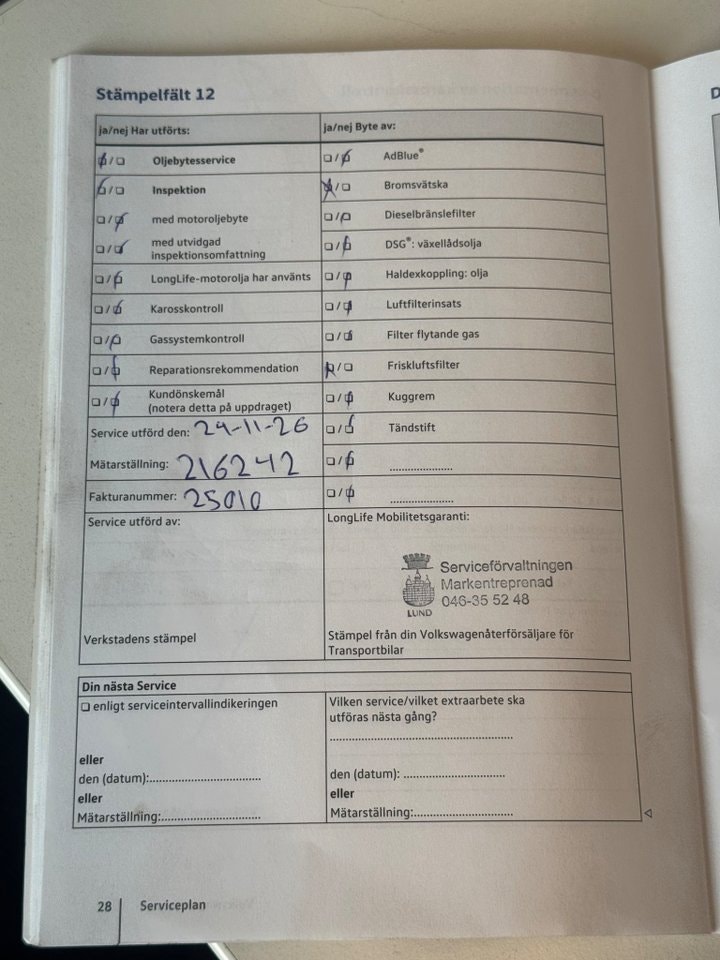 Stämpelfält 12
ja/nej Har utförts:
ja/nej Byte av:
Oljebytesservice
AdBlue®
Inspektion
Bromsvätska
med motoroljebyte
Dieselbränslefilter
med utvidgad
inspektionsomfattning
DSG®: växellådsolja
LongLife-motorolja har använts
Haldexkoppling: olja
Karosskontroll
Luftfilterinsats
Gassystemkontroll
Filter flytande gas
Reparationsrekommendation
Friskluftsfilter
Kundönskemål
(notera detta på uppdraget)
Kuggrem
Service utförd den: 24-11-26
Tändstift
Mätarställning: 216242
Fakturanummer: 25010
Service utförd av:
LongLife Mobilitetsgaranti:
Serviceförvaltningen
Markentreprenad
046-35 52 48
LUND
Verkstadens stämpel
Stämpel från din Volkswagenåterförsäljare för
Transportbilar
Din nästa Service
enligt serviceintervallindikeringen
Vilken service/vilket extraarbete ska
utföras nästa gång?
eller
den (datum):
den (datum):
eller
eller
Mätarställning:
Mätarställning:
28 Serviceplan